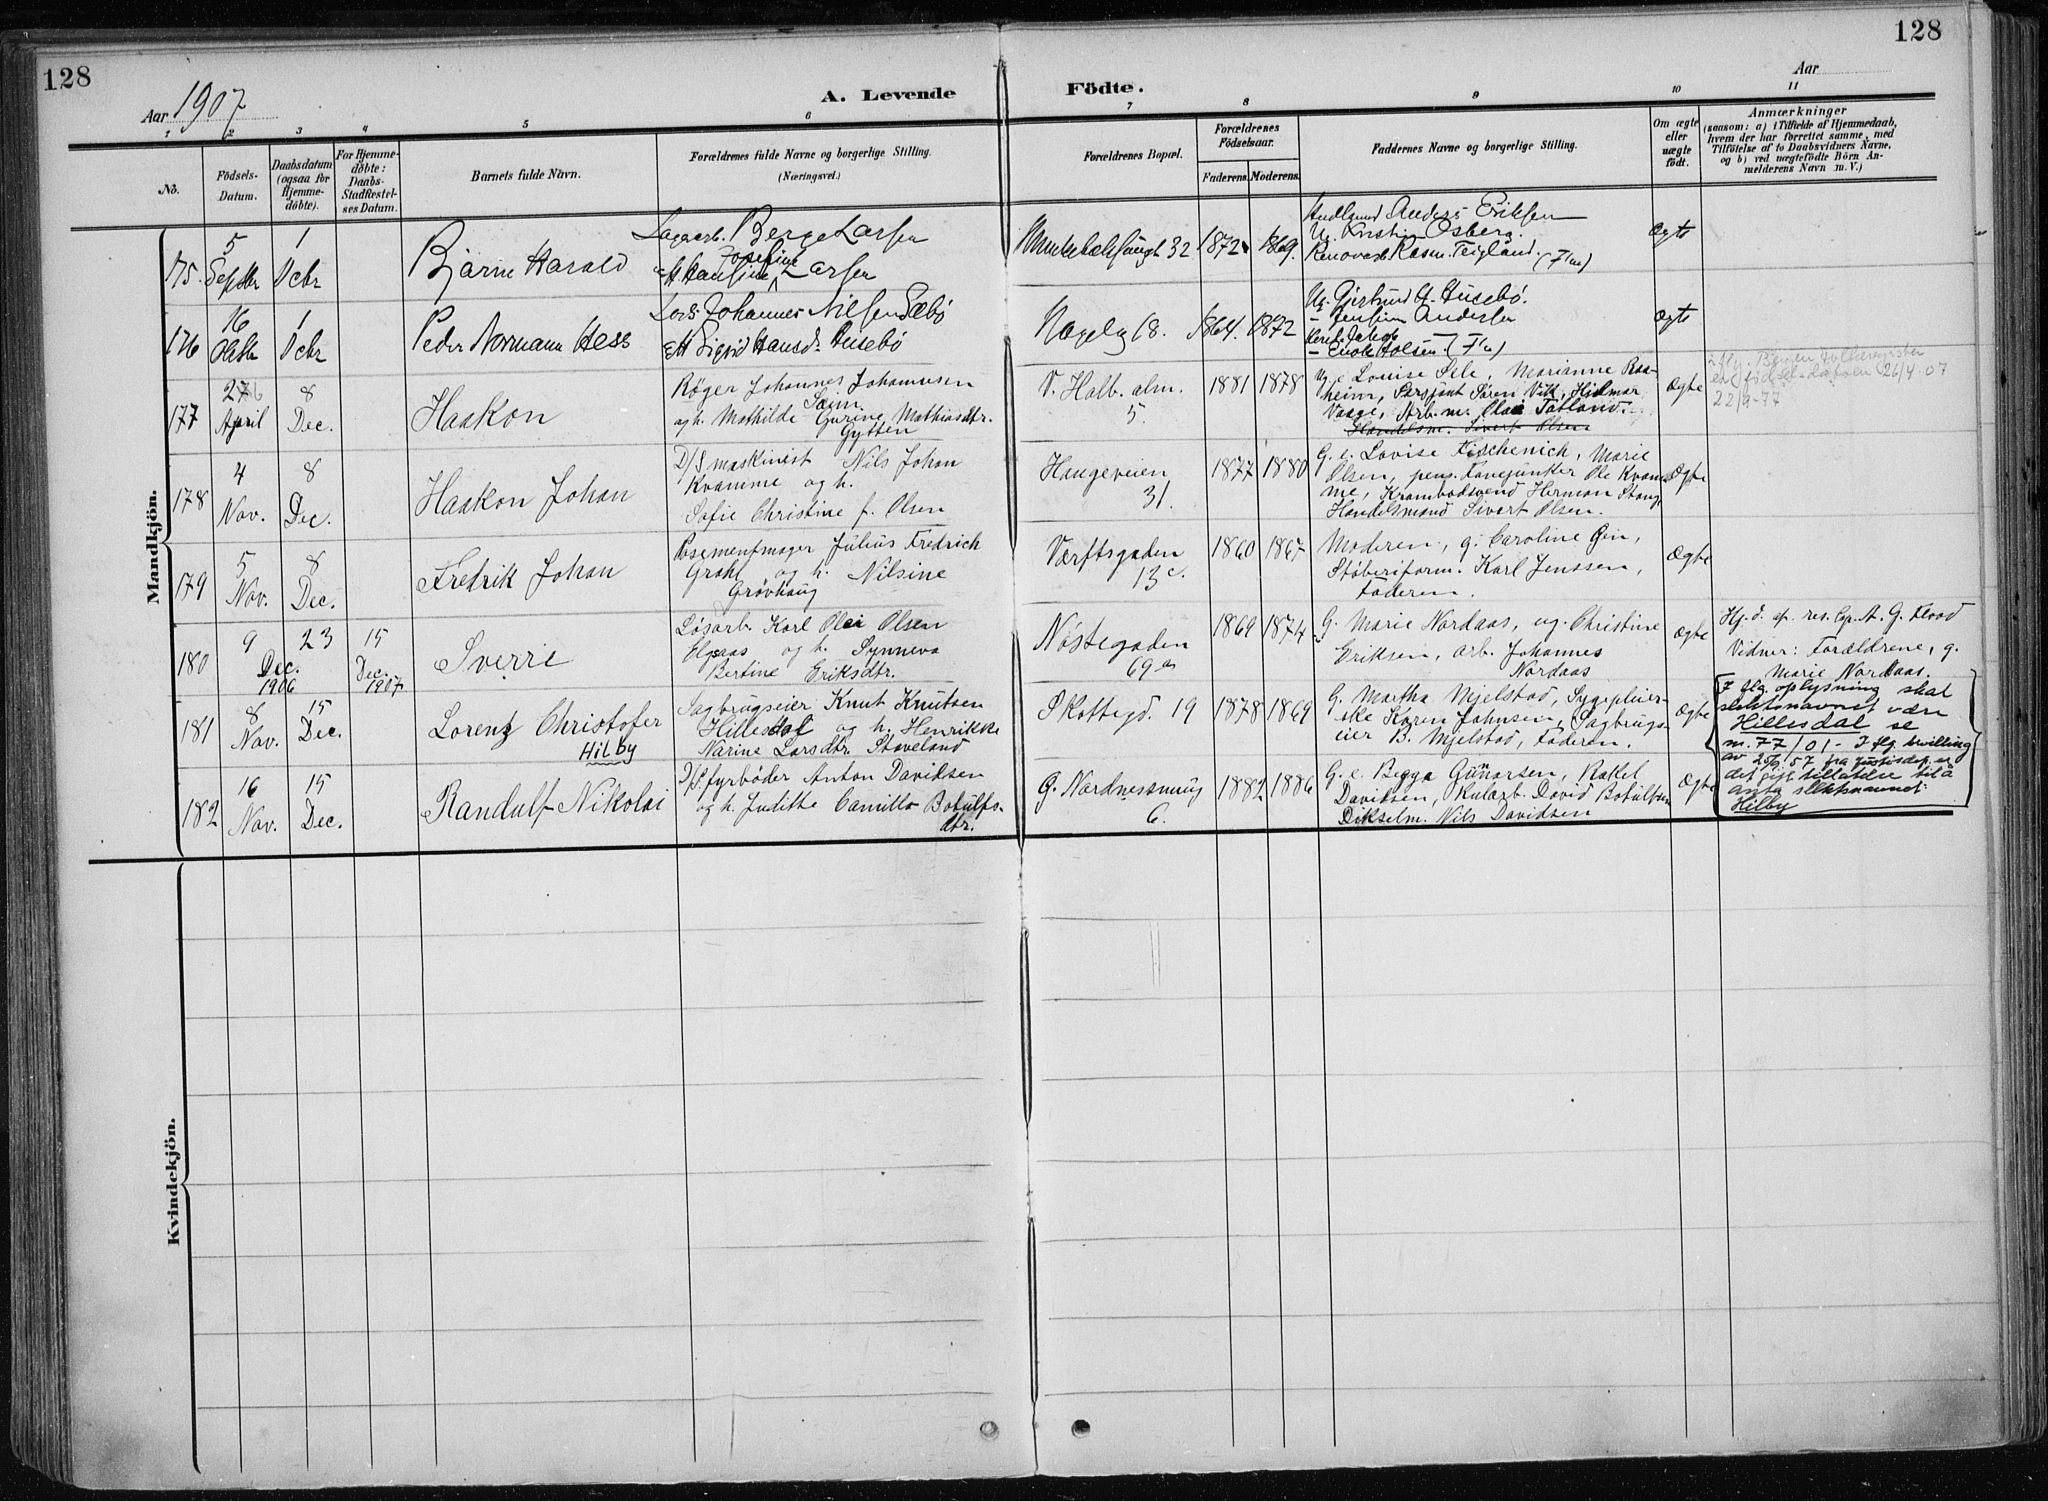 128
128
Aar 1907
A. Levende Födte.
Aar
1 2 3 4 5 6 7 8 9 10 11
No.
Födsels-
Datum.
Daabsdatum
(ogsaa for
Hjemme-
döbte).
For Hjemme-
döbte:
Daabs-
Stadfæstel-
ses Datum.
Barnets fulde Navn.
Forældrenes fulde Navne og borgerlige Stilling.
(Næringsvei.)
Forældrenes Bopæl.
Forældrenes
Födselsaar.
Faderens. Moderens.
Faddernes Navne og borgerlige Stilling.
Om ægte
eller
uægte
födt.
Anmærkninger
(saasom: a) i Tilfælde af Hjemmedaab,
hvem der har forrettet samme, med
Tilföielse af to Daabsvidners Navne,
og b) ved uægtefödte Börn An-
melderens Navn m. V.)
Mandkjön.
175. 5 Septbr 1 Dcbr
Bjarne Harald
Berge Larsen
Josefine
Hansine Larsen
32 1872 1869.
Anders Eriksen
Ug. Kristine Osberg.
Renovasb Rasm. Teigland. (F ne)
Ægte
176 16 Oktbr 1 Dcbr
Peder Normann Hess
Lods Johannes Nilsen Sæbö
Sigrid Hansd. Husebö
18. 1864. 1872
Ug. Gjertrud H. Husebö.
- Andersen
- Enok Holsen. (F ne)
Ægte
177 27 April 8 Dec.
Haakon
Røger Johannes Johannesen
Seim
og h. Mathilde Gurine Mathiasdtr.
Gytten
V. Holb. alm.
5.
1881 1878
Ug. e Louise Sele, Marianne Raa-
heim, Sersjant Søren Vik, Hjelmar
Vaage, Arb. m. Olai Tatland
Handelsm. Sivert Olsen
Ægte
iflg. Bergen folkeregister
er fødsel-datoen 26/4 07
22/9-77
178 4 Nov. 8 Dec.
Haakon Johan
D/S maskinist Nils Johan
Kvamme og h.
Sofie Christine f. Olsen
Haugeveien
31.
1877 1880
G. e. Lovise Fischenich, Marie
Olsen, pens. Fanejunker Ole Kvam-
me, Krambodsvend Herman Stang,
Handelsmand Sivert Olsen.
Ægte
179 5 Nov. 8 Dec.
Fredrik Johan
Posementmager Julius Fredrich
Grahl og h. Nilsine
Grövhaug
Værftsgaden
13 c.
1860 1867
Moderen, g. Caroline Gin,
Støberiform. Karl Jenssen,
Faderen.
Ægte
180 9 Dec. 1906 23 15 Dec. 1907
Sverre
Løsarb. Karl Olai Olsen
Elsaas og h. Synneva
Bertine Eriksdtr.
Nøstegaden
69 a
1869 1874
G. Marie Nordaas, ug. Christine
Eriksen, arb. Johannes
Nordaas
Ægte
Hj. d. af res. Cp. A. G. Flood
Vidner: Forældrene, g.
Marie Nordaas.
181 8 Nov. 15 Dec.
Lorenz Christofer
Hilby
Sagbrugseier Knut Knutsen
Hillesdal og h. Henrikke
Narine Larsdtr. Staveland
Skottegd. 19 1878 1869
G. Martha Mjelstad, Sygepleier-
ske Karen Johnsen, Sagbrugs-
eier B. Mjelstad, Faderen.
Ægte
I flg. oplysning skal
slektsnavnet være
Hillesdal se
m. 77/01 - I flg. bevilling
av 25/6 57 fra justisdep. er
det gitt tillatelse til å
anta slektsnavnet:
Hilby
182 16 Nov. 15 Dec.
Randulf Nikolai
D/S fyrbøder Anton Davidsen
og h. Judithe Camilla Botulfs-
dtr.
G. Nordnessmug
6.
1882 1886
G. e. Begga Gunarsen, Rakel
Davidsen, Skularb. David Botulfsen
Dikselm. Nils Davidsen
Ægte
Kvindekjön.